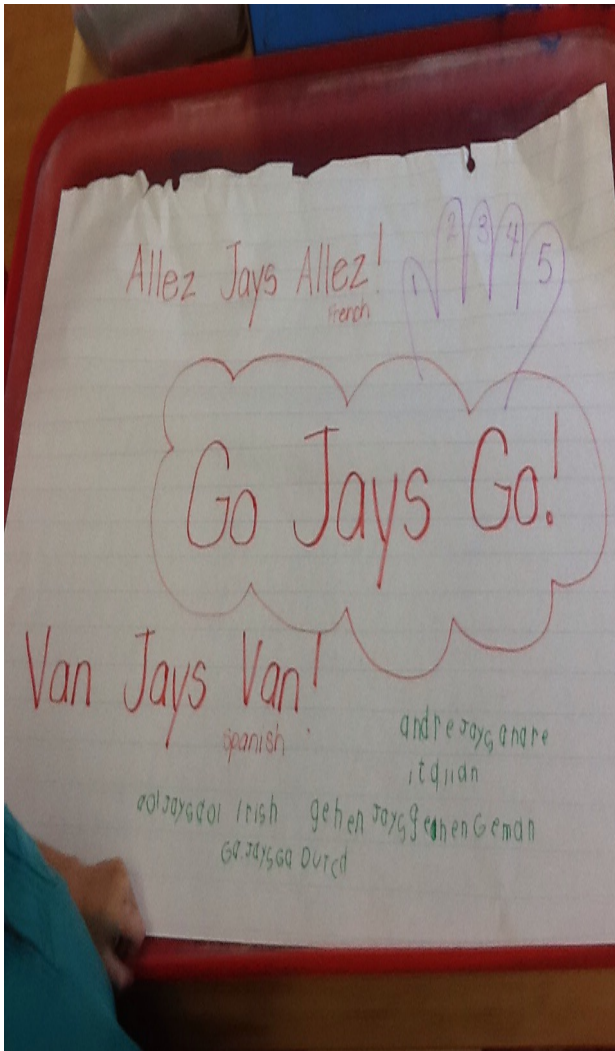 1 2 3 4 5
Allez Jays Allez!
French
Go Jays Go!
Van Jays Van!
Spanish
andre Jays andre
itqlian
dol Jays dol Irish gehen Jays gehen Geman
Ga Jays Ga Dutcd